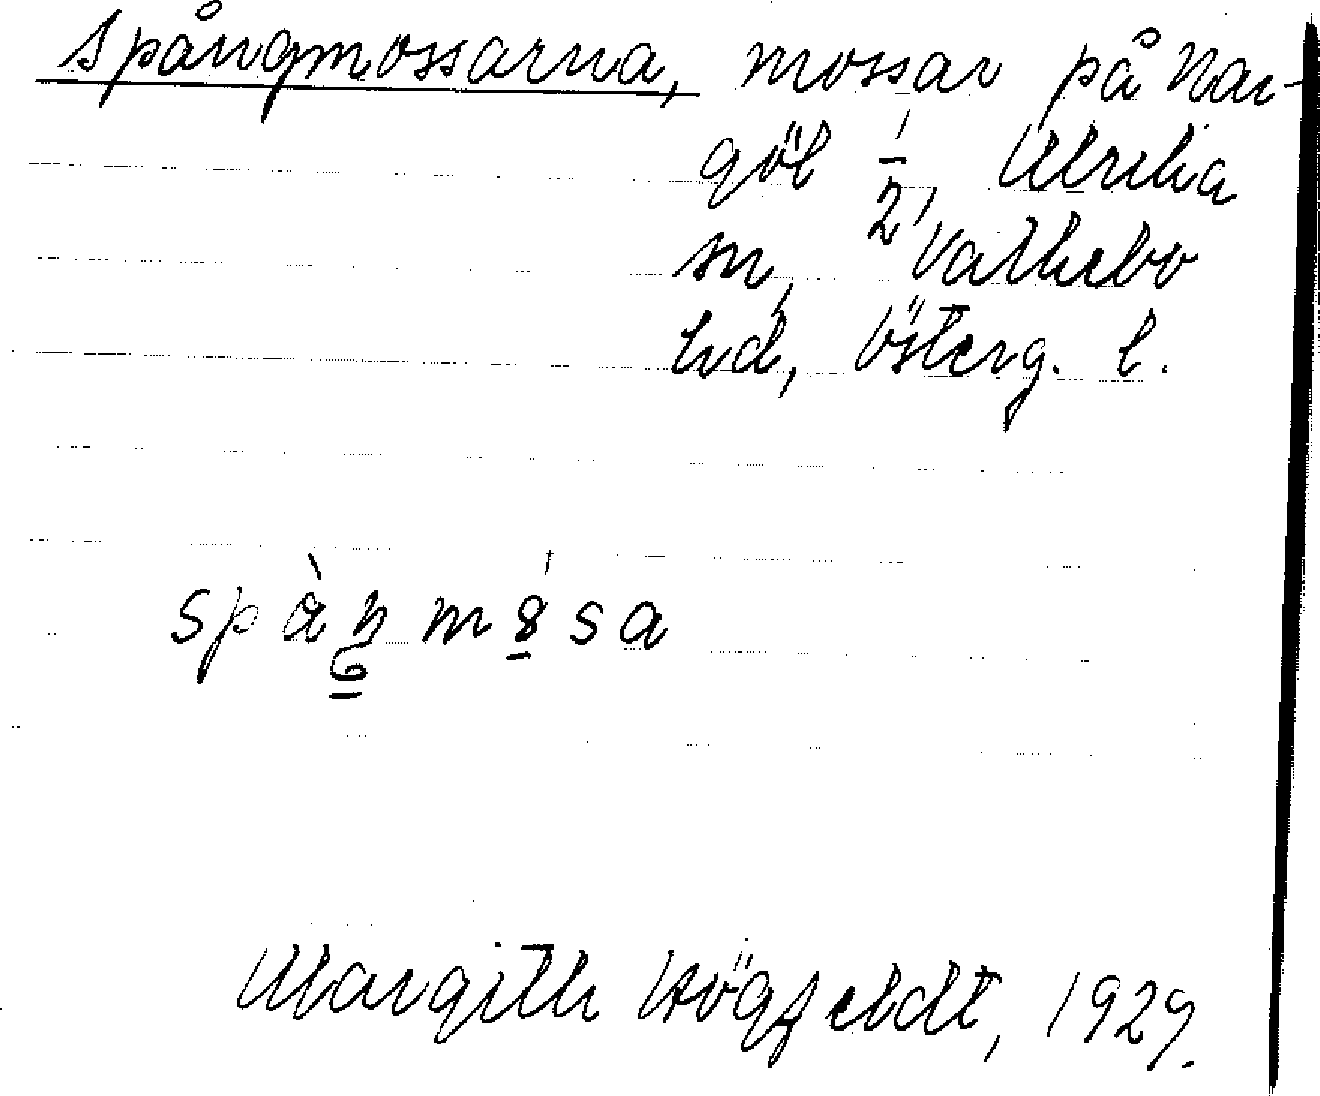 Spångmossarna, mossar på Nar-
göl 1/2, Ulrika
sn, Valkebo
hd, Österg. l.
spàŋmôsa
Margith Högfeldt, 1929.